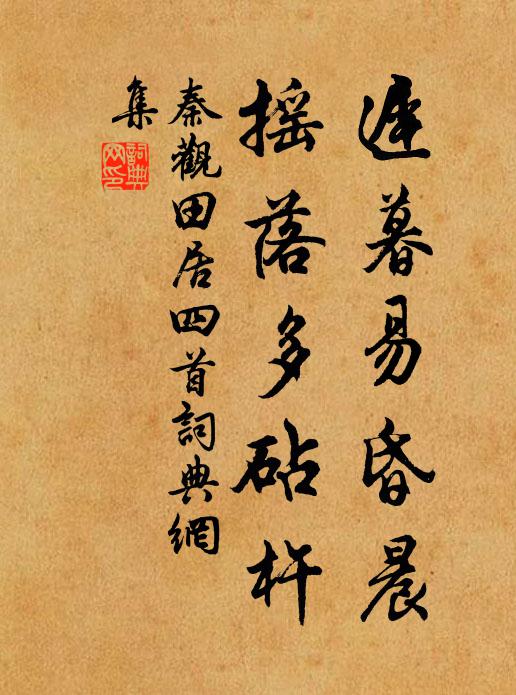 遲暮易昏晨
搖落多砧杵
秦觀田居四首詞典網
集
詞典網印